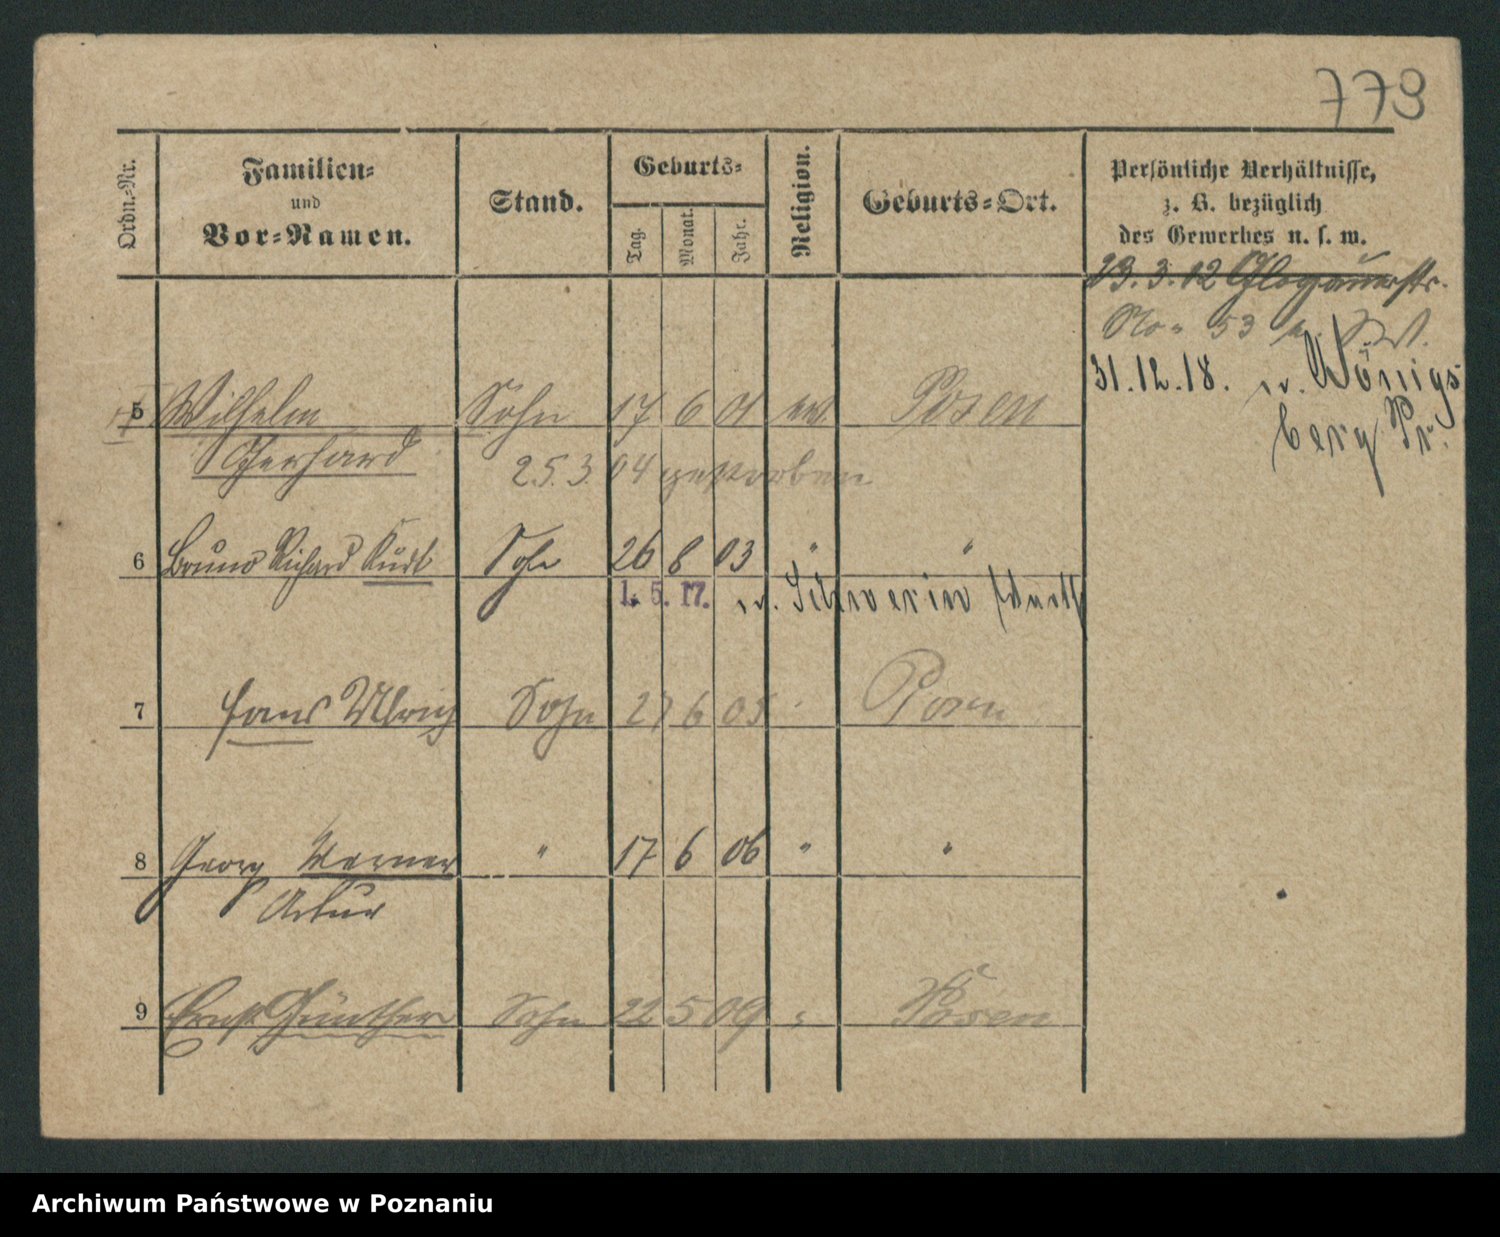 779
Ordn.-Nr.
Familien-
und
Vor-Namen.
Stand.
Geburts-
Tag.
Monat.
Jahr.
Religion.
Geburts-Ort.
Persönliche Verhältnisse,
z. B. bezüglich
des Gewerbes u. s. w.
23. 3. 12 Glogauerstr.
No 53
31. 12. 18. n. Königs
berg Pr.
5 Wilhelm Sohn 17 6 01 ev. Posen
Gerhard 25. 3. 04 gestorben
6 Bruno Richard Kurt Sohn 26 8 03 " "
1. 5. 17. n. Schwerin
7 Hans Ulrich Sohn 27 6 05 Posen
8 Georg Werner " 17 6 06 " "
Artur
9 Ernst Günther Sohn 22 5 09 " Posen
Archiwum Państwowe w Poznaniu